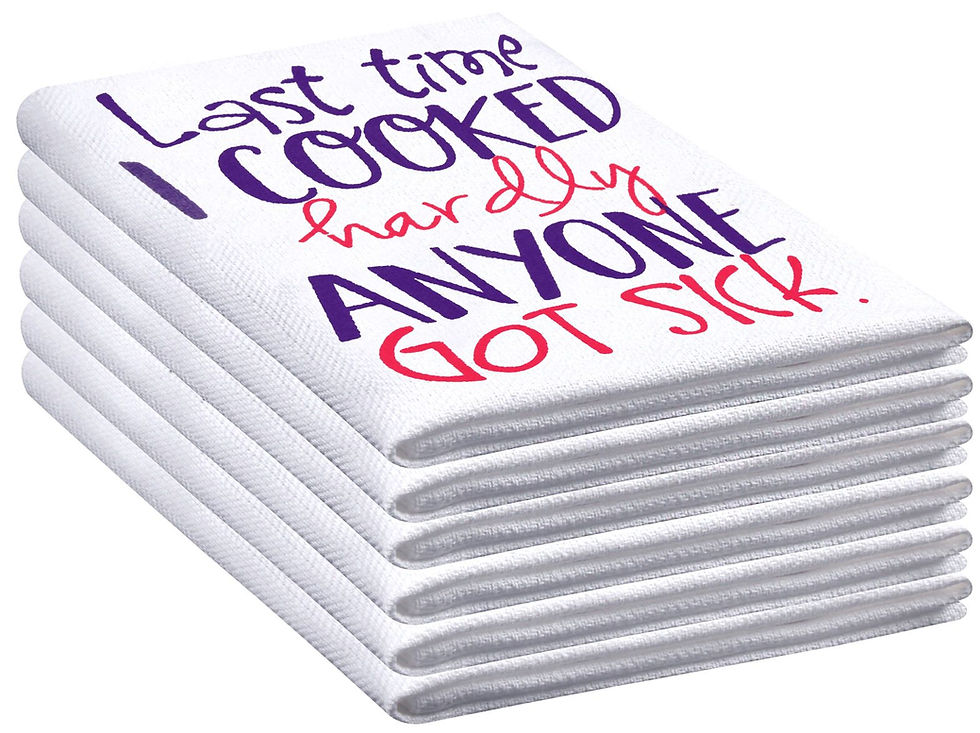 Last time
I COOKED
hardly
ANYONE
GOT SICK.